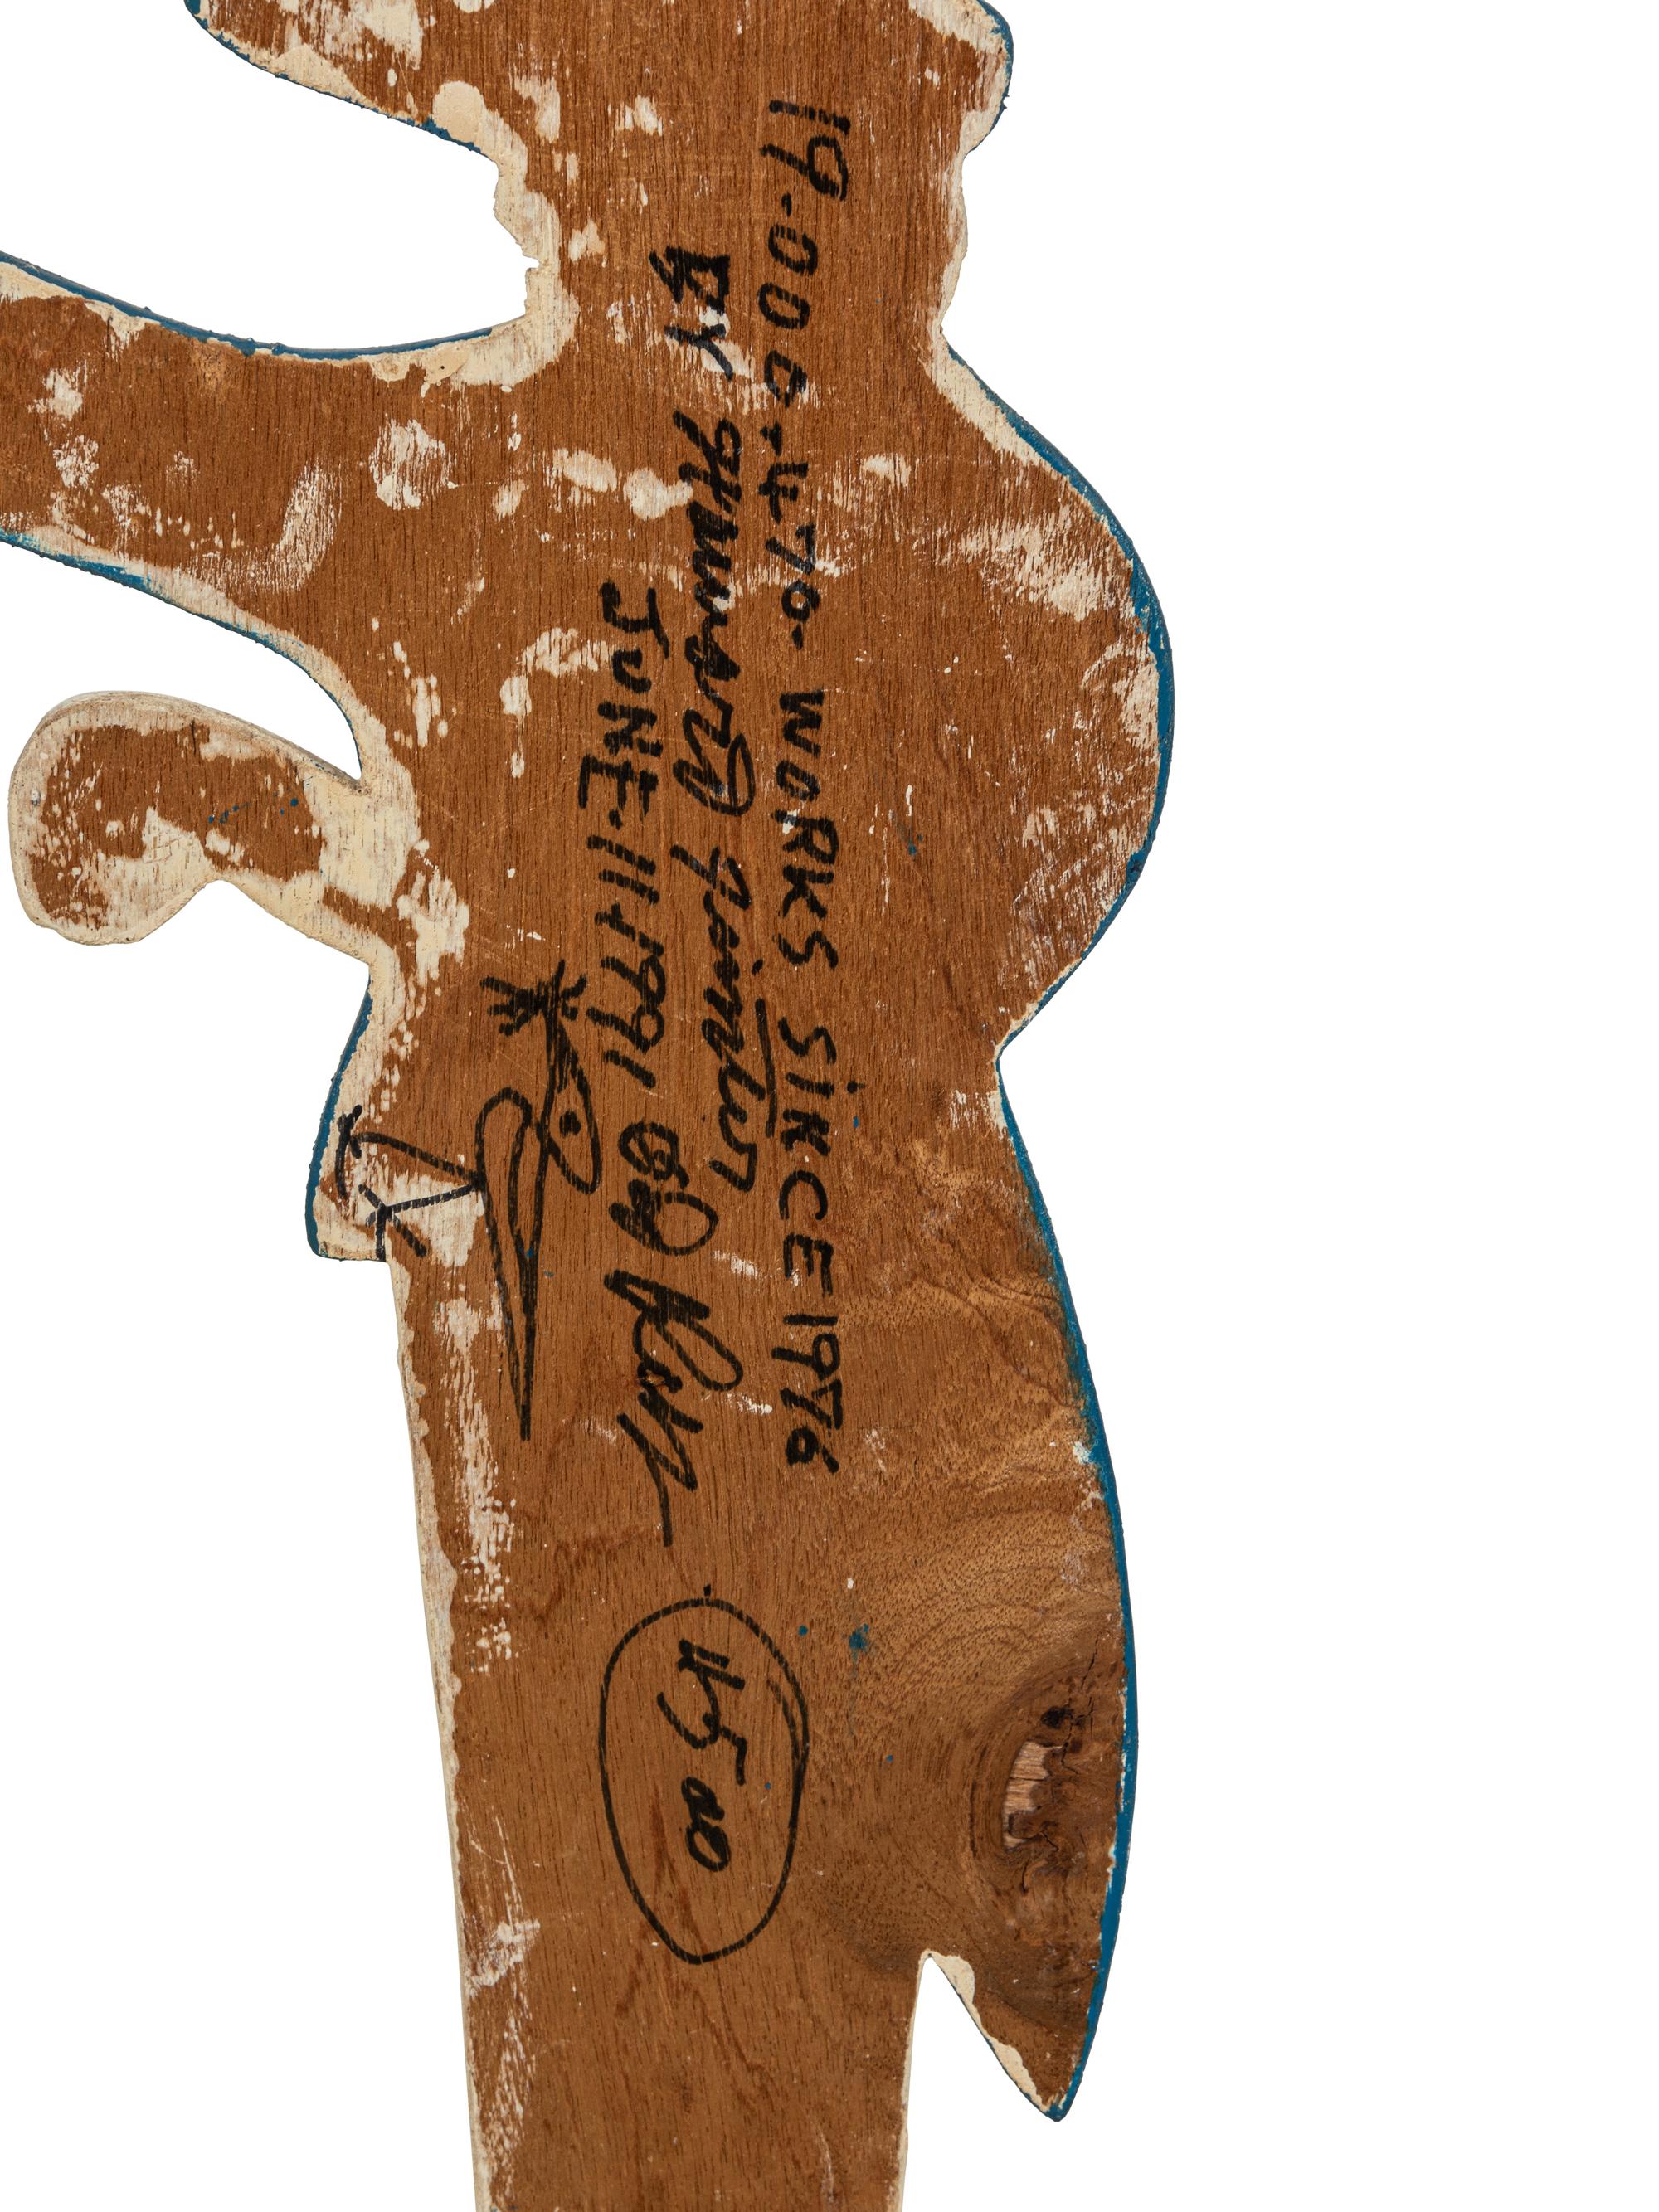 19-000-470-WORKS SINCE 1976
BY Howard Finster
JUNE-11-1991